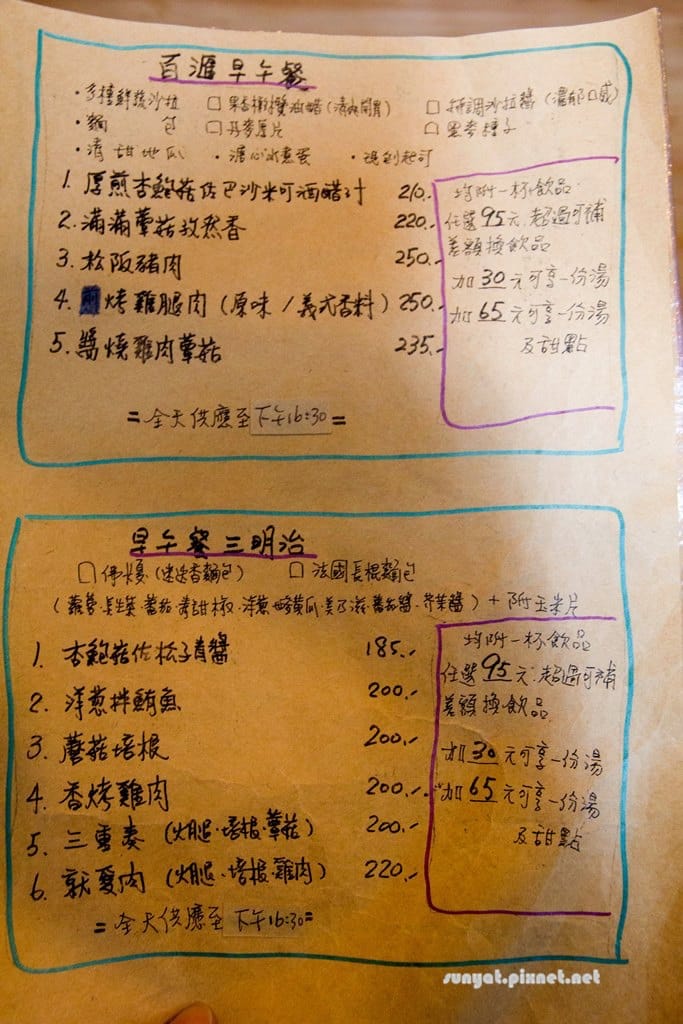 百滙早午餐
·多種鮮蔬沙拉 □果香橄欖油醋(清爽開胃) □特調沙拉醬(濃郁口感)
·麵 包 □丹麥厚片 □黑麥種子
·清甜地瓜 ·溏心水煮蛋 ·現刨起司
1. 厚煎杏鮑菇佐巴沙米可酒醋汁 210.-
2. 滿滿蕈菇孜然香 220.-
3. 松阪豬肉 250.-
4. 烤雞腿肉(原味/義式香料) 250.-
5. 醬燒雞肉蕈菇 235.-
均附一杯飲品
任選95元,超過可補
差額換飲品
加30元可享一份湯
加65元可享一份湯
及甜點
=全天供應至下午16:30=
早午餐三明治
□佛卡夏(迷迭香麵包) □法國長棍麵包
(蘿蔓·長生菜·蕃茄·青甜椒·洋蔥·酸黃瓜·美乃滋·蕃茄醬·芥茉醬)+附玉米片
1. 杏鮑菇佐松子青醬 185.-
2. 洋蔥拌鮪魚 200.-
3. 蘑菇培根 200.-
4. 香烤雞肉 200.-
5. 三重奏(火腿·培根·蕈菇) 200.-
6. 就夏肉(火腿·培根·雞肉) 220.-
均附一杯飲品
任選95元,超過可補
差額換飲品
加30元可享一份湯
加65元可享一份湯
及甜點
=全天供應至下午16:30=
sunyat.pixnet.net